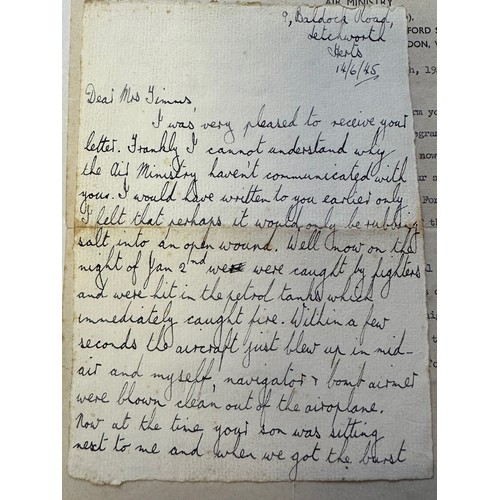 AIR MINISTRY
9, Baldock Road,
Letchworth
Herts
14/6/45
Dear Mrs Timms,
I was very pleased to receive your
letter. Frankly I cannot understand why
the Air Ministry haven't communicated with
you. I would have written to you earlier only
I felt that perhaps it would only be rubbing
salt into an open wound. Well now on the
night of Jan 2nd we were caught by fighters
and were hit in the petrol tanks which
immediately caught fire. Within a few
seconds the aircraft just blew up in mid-
air and myself, navigator & bomb aimer
were blown clean out of the aeroplane.
Now at the time your son was sitting
next to me and when we got the burst